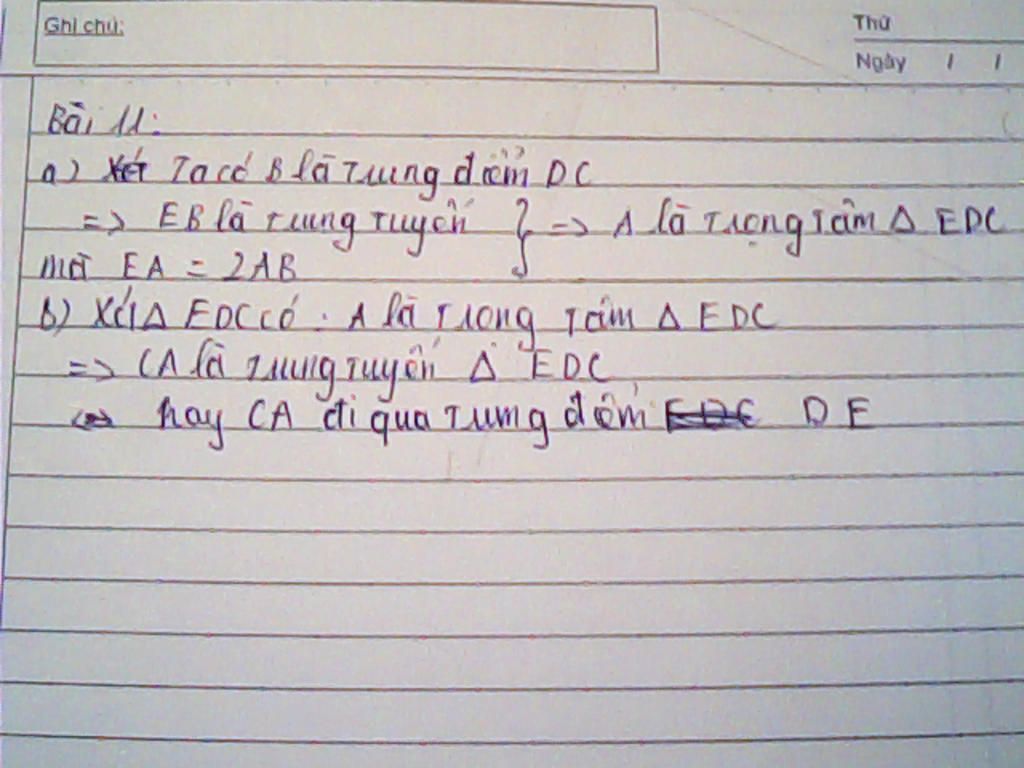 Ghi chú:
Thứ
Ngày / /
Bài 11:
a) Xét Ta có B là Trung điểm DC
=> EB là Trung Tuyến } => A là Trọng Tâm Δ EDC
mà EA = 2AB
b) Xét Δ EDC có : A là Trọng Tâm Δ EDC
=> CA là Trung Tuyến Δ EDC
hay CA đi qua Trung điểm DE